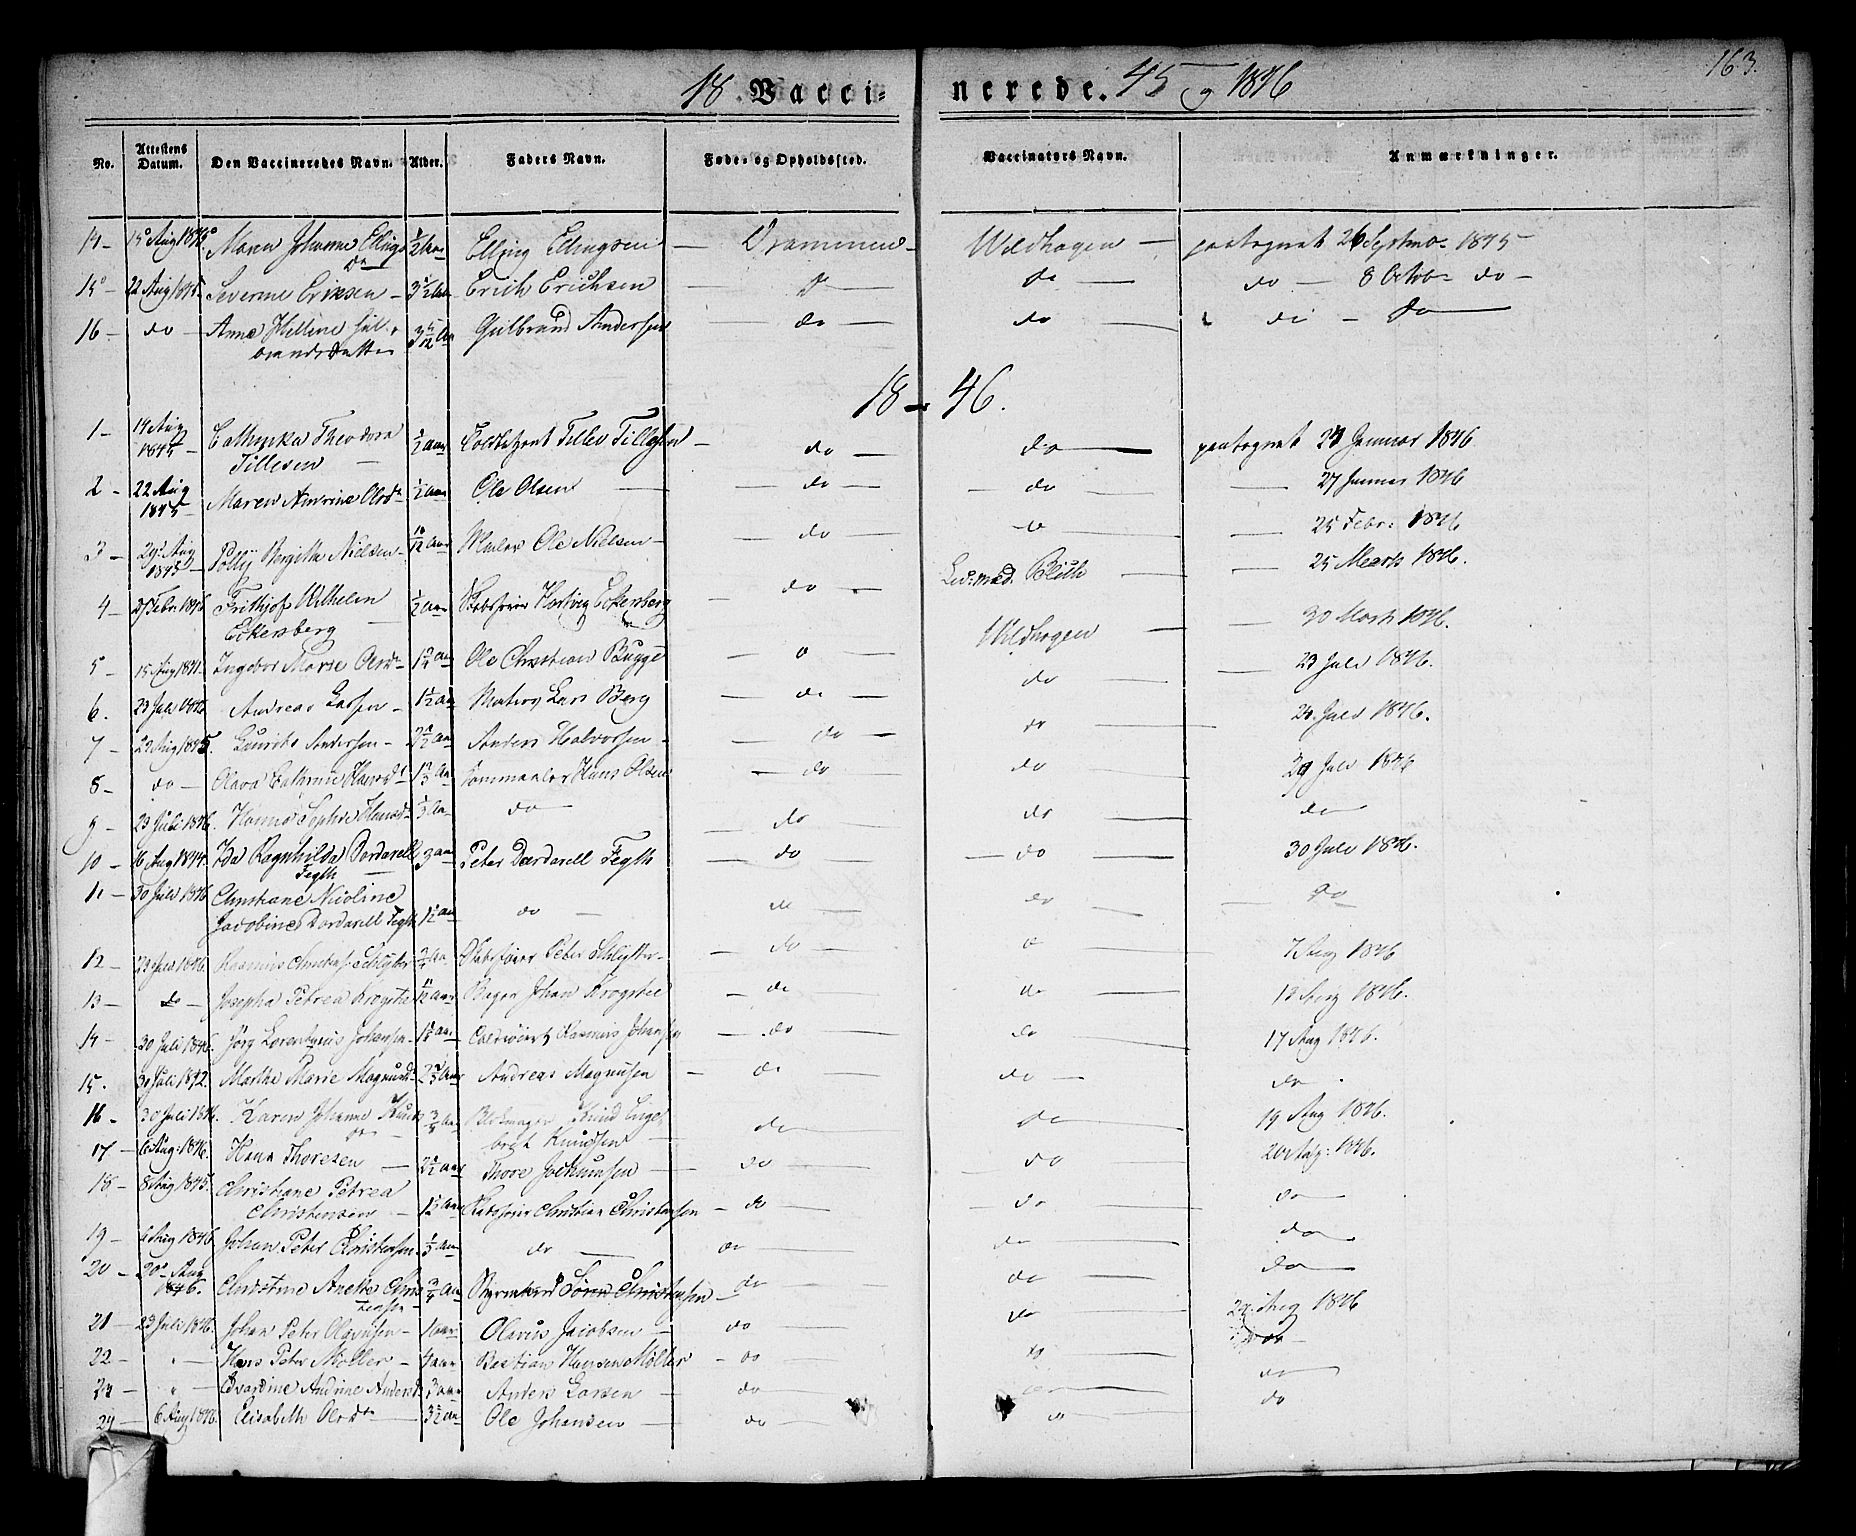 163.
18 Vaccinerede. 45 og 1846
No. Attestens Datum. Den Vaccineredes Navn. Alder. Faders Navn. Fødes og Opholdssted. Vaccinators Navn. Anmærkninger.
14 - 15 Aug 1845 Maren Johanne Ellings 1/2 Aar Elling Ellingsen — Drammen - Wildhagen — paategnet 26 Septmb. 1845
Dr
15 22 Aug 1845 Severine Eriksen - 3 1/2 Aar Erich Erichsen — do — do — do — 8 Octobr do -
16 - do - Anne Helline Gul- Gulbrand Andersen — do — do — do - do —
brandsdatter
18 - 46.
1 - 14 Aug Cathinka Theodora 1/2 aar Toldbetjent Tilles Tillesen - do — do — paategnet 23 Januar 1846
1845 - Tillesen —
2 - 22 Aug Maren Andrine Olsd 1/2 aar Ole Olsen — do — do — 27 Januar 1846
1845 -
3 - 29 Aug Polly Bergitte Nielsen - 10/12 aar Maler Ole Nielsen - do — do — 25 Febr. 1846
1845 -
4 - Febr. 1846 Frithjof Wilhelm 1/2 aar Skibsfører Hartvig Eckersberg — do — med. Blich — 25 Marts 1846.
Eckersberg —
5 - 15 Aug 1841. Ingebor Marie Olsd - Ole Christian Bugge — do — Wildhagen — 30 Marts 1846.
6. 23 Juli 1846 Andreas Larsen - 1 1/2 aar Matros Lars Berg — do — do — 23 Juli 1846.
7 - 22 Aug 1845. Lauritz Andersen - Anders Halvorsen - do — do — 24 Juli 1846.
8 - do - Olava Cathrine Hansd Hans Olsen — do — do — 29 Juli 1846
9 - 23 Juli 1846. Hanna Sophie Hansd 1/3 Aar do — do — do — do —
10 - 6 Aug 1844. Ida Ragnhilda Dardarell 3 aar Peter Dardarell Fegth — do — do — 30 Juli 1846.
Fegth
11 - 30 Juli 1846 Christiane Nicoline
Jacobine Dardarell Fegth 1 1/2 aar do — do — do — do
12 - 23 Juli 1846. Rasmus Schlytter 3/4 aar Skibsfører Peter Schlytter - do — do — 7 Aug 1846
13 - do - Josepha Petrea Krogstie 11/12 aar Bager Johan Krogstie — do — do — 13 Aug 1846.
14 - 30 Juli 1846. Jørg Laurentzius Johansen - Rasmus Johansen — do — do — 17 Aug 1846.
15. 30 Juli 1842. Marthe Marie Magnusd Andreas Magnusen - do — do — do
16 - 30 Juli 1846. Karen Johanne Knuds 3/4 aar Knud Engel- do — do — 19 Aug 1846.
17 - 6 Aug 1846. Hans Thoresen — 2 1/2 aar Thore Jochumsen — do — do — 20 Aug. 1846.
bret Knudsen —
18 - 8 Aug 1845. Christiane Petrea
Christensen - 1 1/2 aar Skibsfører Christian Christensen - do — do — do —
19 - 6 Aug 1846 Johan Peter Christensen - 1/3 aar do — do — do — do —
20 - 20 Aug Christine Anette Chris 3/4 aar Styrmand Sören Christensen - do — do — do —
1846. tensen -
21 - 23 Juli 1846. Johan Peter Olavusen - 10 aar Olavus Jacobsen — do — do — 24 Aug 1846
22 - " - Hans Peter Möller - 4 aar Bestian Hansen Möller - do — do — do —
23 - " - Edvardine Andrine Andersd 3 aar Anders Larsen - do — do — do —
24 - 6 Aug 1846. Elisabeth Olsd — 3 1/2 aar Ole Johansen — do — do — do